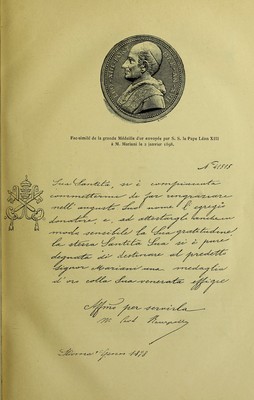 Fac-similé de la grande Médaille d'or envoyée par S. S. le Pape Léon XIII
à M. Mariani le 2 janvier 1898.
Sua Santità, si è compiaciuta
commettermi di far ringraziare
nell' augusto Suo nome l'egregio
donatore, e, ad attestargli anche in
modo sensibile la Sua gratitudine
la stessa Santità Sua si è pure
degnata di destinare al predetto
Signor Mariani una medaglia
d'oro colla Sua venerata effigie
Affmo per servirla
M. Card Rampolla
Roma 2 Gennº 1898